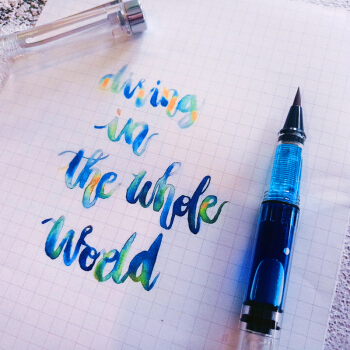 diving
in
the whole
World